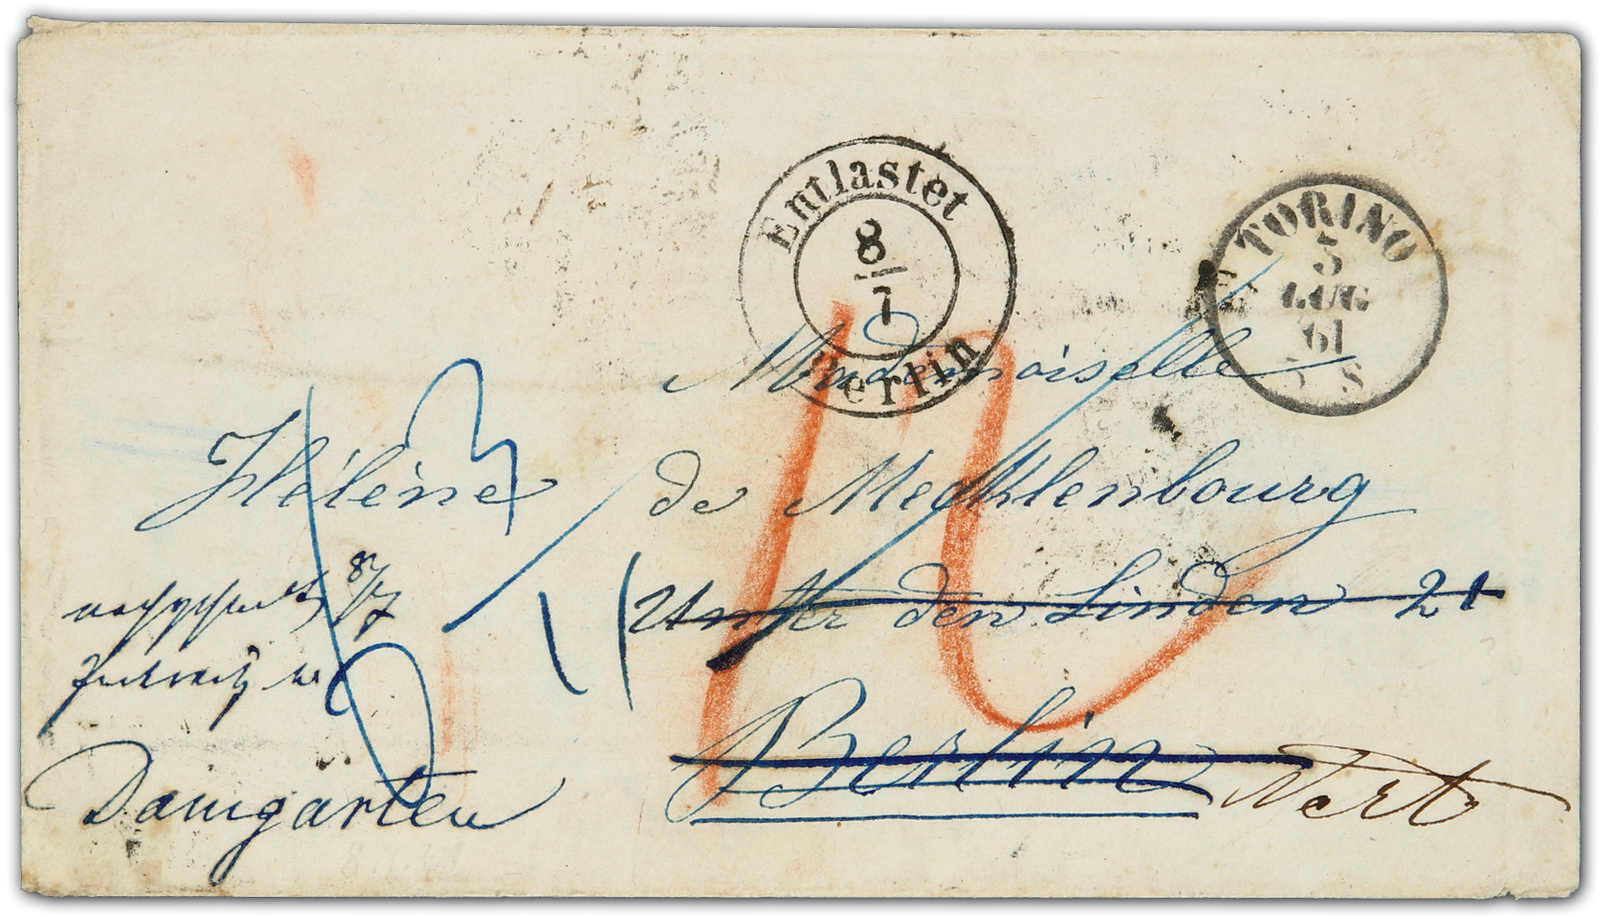 Entlastet
8/7
Berlin
TORINO
5
LUG
61
S
Mademoiselle
Hélène de Mecklenbourg
Unter den Linden 21
Berlin
8/7
Damgarten